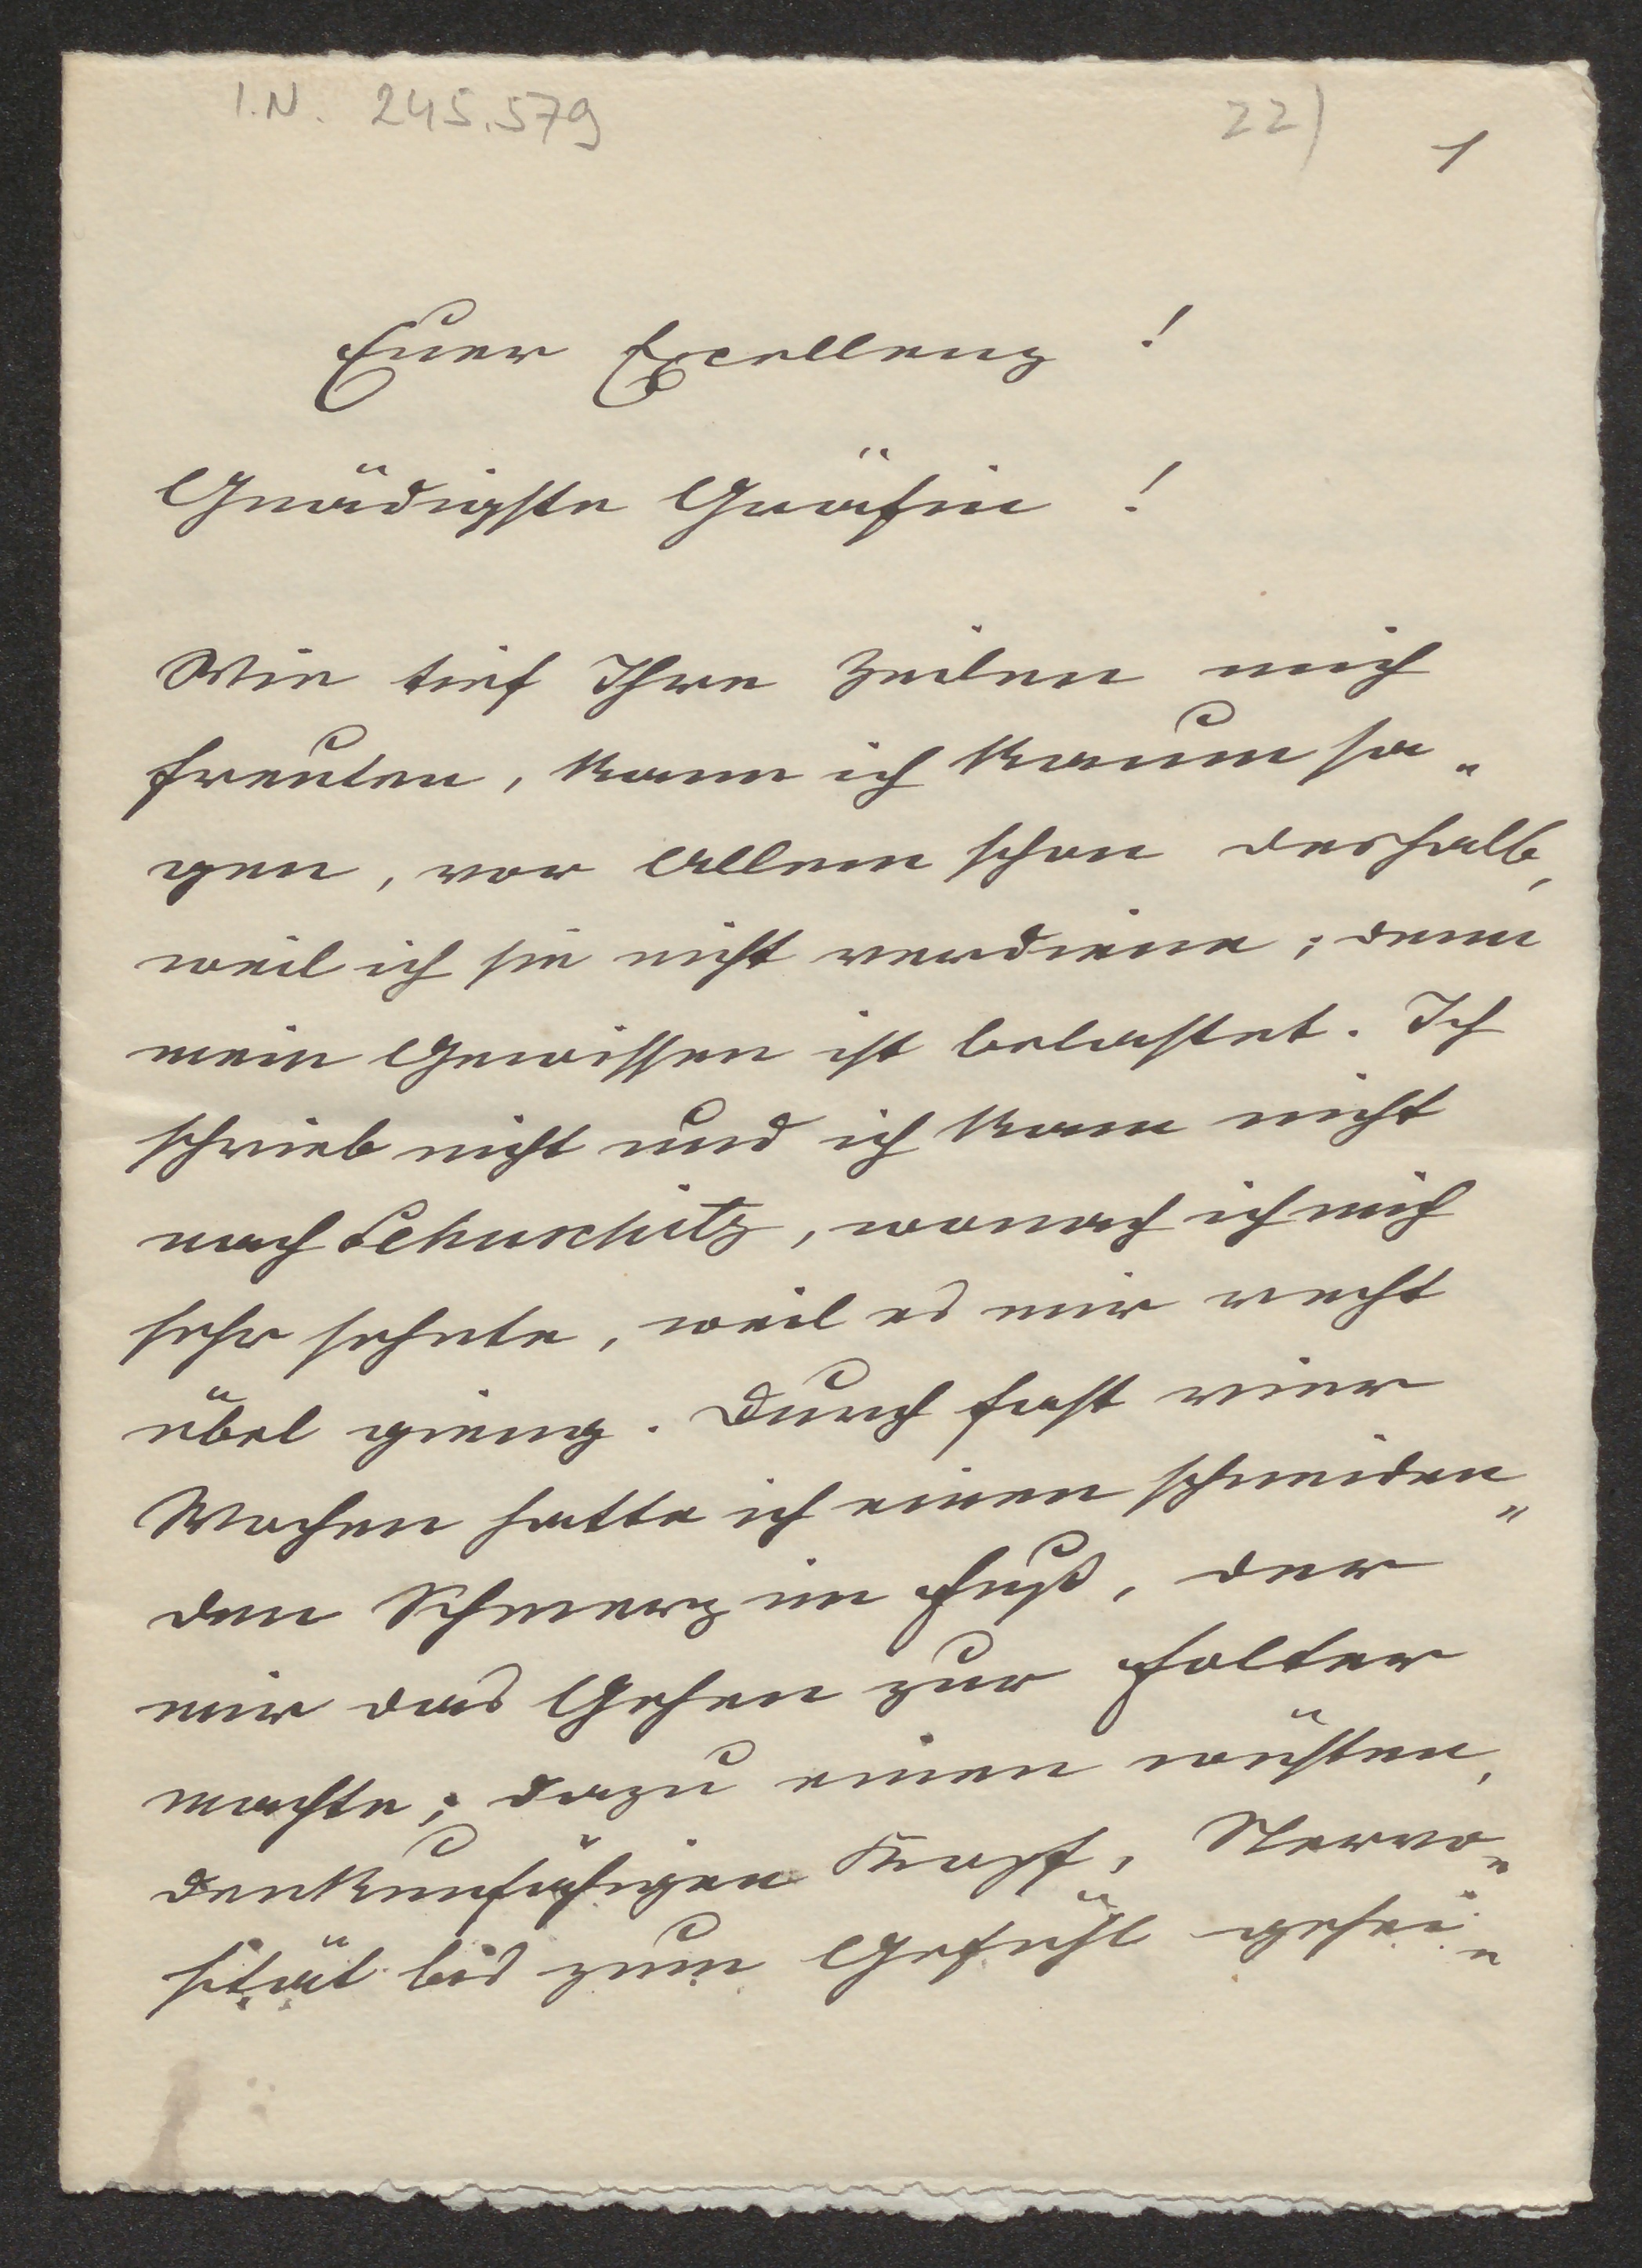 I.N. 245.579
22)
1
Euer Excellenz !
Gnädigste Gräfin !
Wie tief Ihre Zeilen mich
freuten, kann ich kaum sa-
gen, vor Allem schon deshalb,
weil ich sie nicht verdiene; denn
mein Gewissen ist belastet. Ich
schrieb nicht und ich kam nicht
nach Lehuschitz, wonach ich mich
sehr sehnte, weil es mir recht
übel gieng. Durch fast vier
Wochen hatte ich einen schneiden-
den Schmerz im Fuß, der
mir das Gehen zur Folter
machte; dazu einen wüsten,
denkunfähigen Kopf, Nervo-
sität bis zum Gefühl gehei-